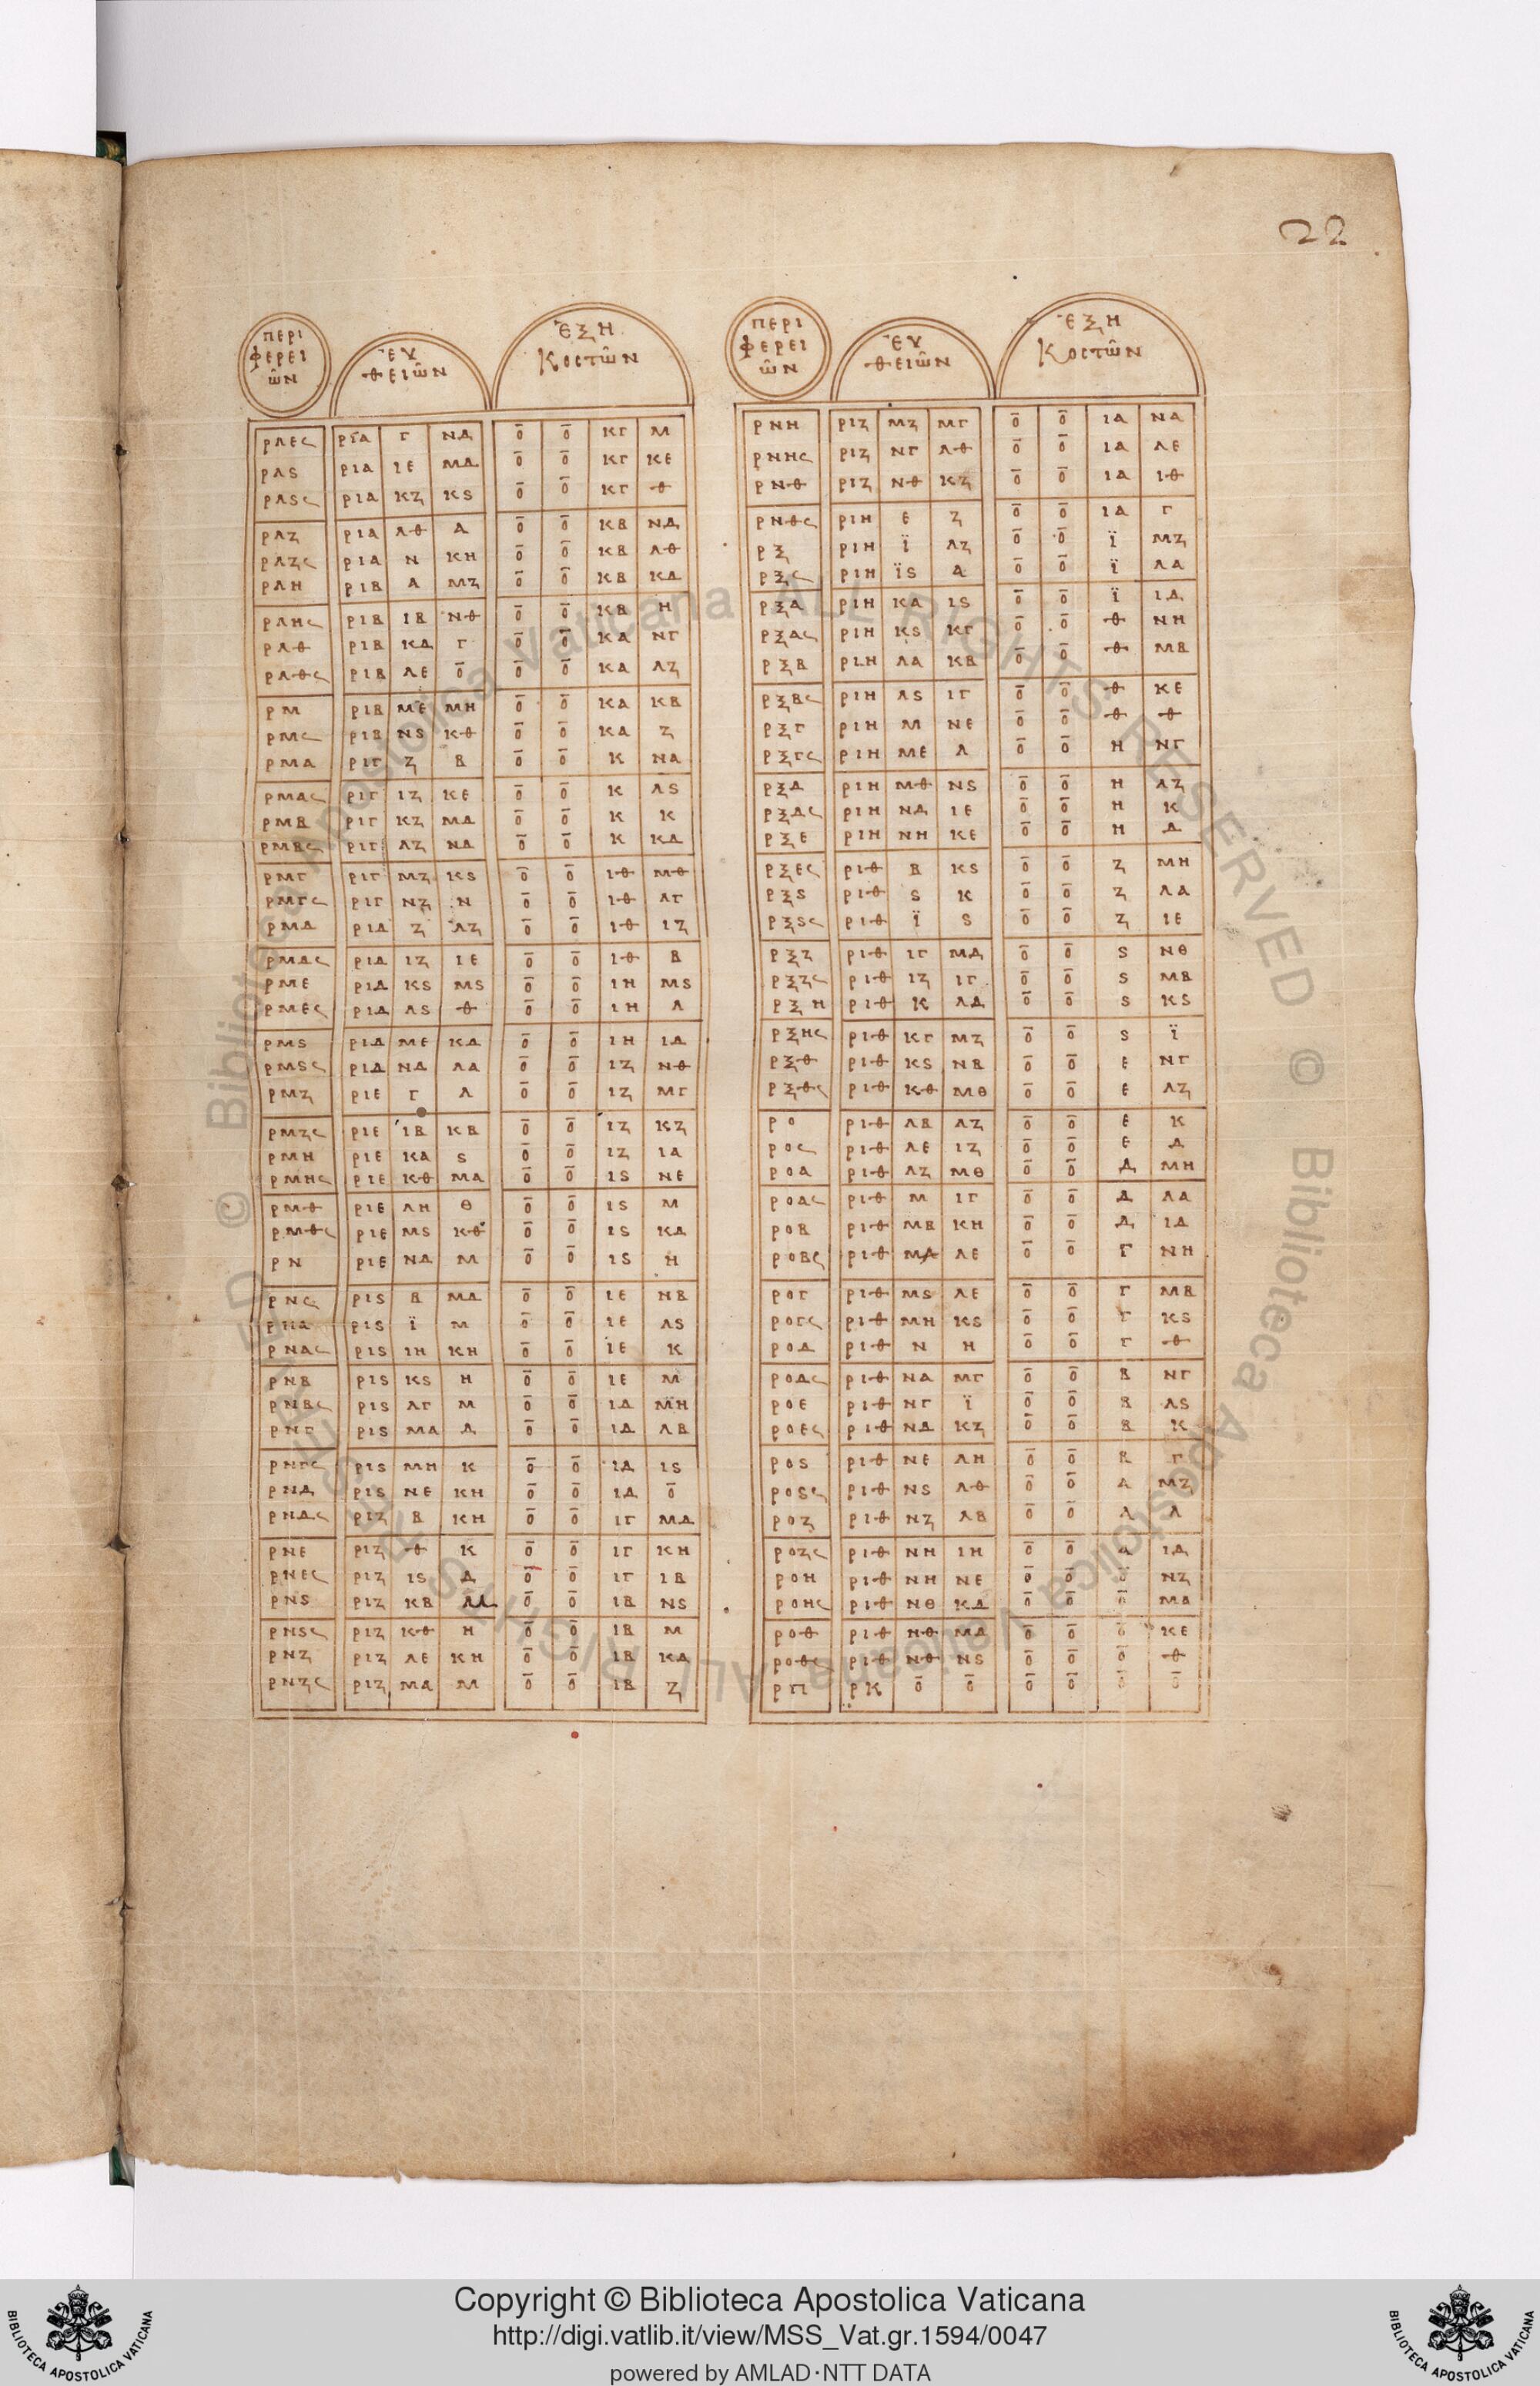 22
ΠΕΡΙ
ΦΕΡΕΙ
ῶΝ
ΕΥ
ΘΕΙῶΝ
ἙΞΗ
ΚΟϹΤῶΝ
ΡΛΕ𐅵 ΡΙΑ Γ ΝΔ ō ō ΚΓ Μ
ΡΛϚ ΡΙΑ ΙΕ ΜΔ ō ō ΚΓ ΚΕ
ΡΛϚ𐅵 ΡΙΑ ΚΖ ΚϚ ō ō ΚΓ Θ
ΡΛΖ ΡΙΑ ΛΘ Δ ō ō ΚΒ ΝΔ
ΡΛΖ𐅵 ΡΙΑ Ν ΚΗ ō ō ΚΒ ΛΘ
ΡΛΗ ΡΙΒ Α ΜΖ ō ō ΚΒ ΚΔ
ΡΛΗ𐅵 ΡΙΒ ΙΒ ΝΘ ō ō ΚΒ Η
ΡΛΘ ΡΙΒ ΚΔ Γ ō ō ΚΑ ΝΓ
ΡΛΘ𐅵 ΡΙΒ ΛΕ ō ō ō ΚΑ ΛΖ
ΡΜ ΡΙΒ ΜΕ ΜΗ ō ō ΚΑ ΚΒ
ΡΜ𐅵 ΡΙΒ ΝϚ ΚΘ ō ō ΚΑ Ζ
ΡΜΑ ΡΙΓ Ζ Β ō ō Κ ΝΑ
ΡΜΑ𐅵 ΡΙΓ ΙΖ ΚΕ ō ō Κ ΛϚ
ΡΜΒ ΡΙΓ ΚΖ ΜΔ ō ō Κ Κ
ΡΜΒ𐅵 ΡΙΓ ΛΖ ΝΔ ō ō Κ ΚΔ
ΡΜΓ ΡΙΓ ΜΖ ΚϚ ō ō ΙΘ ΜΘ
ΡΜΓ𐅵 ΡΙΓ ΝΖ Ν ō ō ΙΘ ΛΓ
ΡΜΔ ΡΙΔ Ζ ΛΖ ō ō ΙΘ ΙΖ
ΡΜΔ𐅵 ΡΙΔ ΙΖ ΙΕ ō ō ΙΘ Β
ΡΜΕ ΡΙΔ ΚϚ ΜϚ ō ō ΙΗ ΜϚ
ΡΜΕ𐅵 ΡΙΔ ΛϚ Θ ō ō ΙΗ Λ
ΡΜϚ ΡΙΔ ΜΕ ΚΔ ō ō ΙΗ ΙΔ
ΡΜϚ𐅵 ΡΙΔ ΝΔ ΛΑ ō ō ΙΖ ΝΘ
ΡΜΖ ΡΙΕ Γ Λ ō ō ΙΖ ΜΓ
ΡΜΖ𐅵 ΡΙΕ ΙΒ ΚΒ ō ō ΙΖ ΚΖ
ΡΜΗ ΡΙΕ ΚΑ Ϛ ō ō ΙΖ ΙΑ
ΡΜΗ𐅵 ΡΙΕ ΚΘ ΜΑ ō ō ΙϚ ΝΕ
ΡΜΘ ΡΙΕ ΛΗ Θ ō ō ΙϚ Μ
ΡΜΘ𐅵 ΡΙΕ ΜϚ ΚΘ ō ō ΙϚ ΚΔ
ΡΝ ΡΙΕ ΝΔ Μ ō ō ΙϚ Η
ΡΝ𐅵 ΡΙϚ Β ΜΔ ō ō ΙΕ ΝΒ
ΡΝΑ ΡΙϚ Ϊ Μ ō ō ΙΕ ΛϚ
ΡΝΑ𐅵 ΡΙϚ ΙΗ ΚΗ ō ō ΙΕ Κ
ΡΝΒ ΡΙϚ ΚϚ Η ō ō ΙΕ Μ
ΡΝΒ𐅵 ΡΙϚ ΛΓ Μ ō ō ΙΔ ΜΗ
ΡΝΓ ΡΙϚ ΜΑ Δ ō ō ΙΔ ΛΒ
ΡΝΓ𐅵 ΡΙϚ ΜΗ Κ ō ō ΙΔ ΙϚ
ΡΝΔ ΡΙϚ ΝΕ ΚΗ ō ō ΙΔ ō
ΡΝΔ𐅵 ΡΙΖ Β ΚΗ ō ō ΙΓ ΜΔ
ΡΝΕ ΡΙΖ Θ Κ ō ō ΙΓ ΚΗ
ΡΝΕ𐅵 ΡΙΖ ΙϚ Δ ō ō ΙΓ ΙΒ
ΡΝϚ ΡΙΖ ΚΒ Μ ō ō ΙΒ ΝϚ
ΡΝϚ𐅵 ΡΙΖ ΚΘ Η ō ō ΙΒ Μ
ΡΝΖ ΡΙΖ ΛΕ ΚΗ ō ō ΙΒ ΚΔ
ΡΝΖ𐅵 ΡΙΖ ΜΑ Μ ō ō ΙΒ Ζ
ΠΕΡΙ
ΦΕΡΕΙ
ῶΝ
ΕΥ
ΘΕΙῶΝ
ἙΞΗ
ΚΟϹΤῶΝ
ΡΝΗ ΡΙΖ ΜΖ ΜΓ ō ō ΙΑ ΝΑ
ΡΝΗ𐅵 ΡΙΖ ΝΓ ΛΘ ō ō ΙΑ ΛΕ
ΡΝΘ ΡΙΖ ΝΘ ΚΖ ō ō ΙΑ ΙΘ
ΡΝΘ𐅵 ΡΙΗ Ε Ζ ō ō ΙΑ Γ
ΡΞ ΡΙΗ Ϊ ΛΖ ō ō Ϊ ΜΖ
ΡΞ𐅵 ΡΙΗ ΪϚ Α ō ō Ϊ ΛΑ
ΡΞΑ ΡΙΗ ΚΑ ΙϚ ō ō Ϊ ΙΔ
ΡΞΑ𐅵 ΡΙΗ ΚϚ ΚΓ ō ō Θ ΝΗ
ΡΞΒ ΡΙΗ ΛΑ ΚΒ ō ō Θ ΜΒ
ΡΞΒ𐅵 ΡΙΗ ΛϚ ΙΓ ō ō Θ ΚΕ
ΡΞΓ ΡΙΗ Μ ΝΕ ō ō Θ Θ
ΡΞΓ𐅵 ΡΙΗ ΜΕ Λ ō ō Η ΝΓ
ΡΞΔ ΡΙΗ ΜΘ ΝϚ ō ō Η ΛΖ
ΡΞΔ𐅵 ΡΙΗ ΝΔ ΙΕ ō ō Η Κ
ΡΞΕ ΡΙΗ ΝΗ ΚΕ ō ō Η Δ
ΡΞΕ𐅵 ΡΙΘ Β ΚϚ ō ō Ζ ΜΗ
ΡΞϚ ΡΙΘ Ϛ Κ ō ō Ζ ΛΑ
ΡΞϚ𐅵 ΡΙΘ Ϊ Ϛ ō ō Ζ ΙΕ
ΡΞΖ ΡΙΘ ΙΓ ΜΔ ō ō Ϛ ΝΘ
ΡΞΖ𐅵 ΡΙΘ ΙΖ ΙΓ ō ō Ϛ ΜΒ
ΡΞΗ ΡΙΘ Κ ΛΔ ō ō Ϛ ΚϚ
ΡΞΗ𐅵 ΡΙΘ ΚΓ ΜΖ ō ō Ϛ Ϊ
ΡΞΘ ΡΙΘ ΚϚ ΝΒ ō ō Ε ΝΓ
ΡΞΘ𐅵 ΡΙΘ ΚΘ ΜΘ ō ō Ε ΛΖ
ΡΟ ΡΙΘ ΛΒ ΛΖ ō ō Ε Κ
ΡΟ𐅵 ΡΙΘ ΛΕ ΙΖ ō ō Ε Δ
ΡΟΑ ΡΙΘ ΛΖ ΜΘ ō ō Δ ΜΗ
ΡΟΑ𐅵 ΡΙΘ Μ ΙΓ ō ō Δ ΛΑ
ΡΟΒ ΡΙΘ ΜΒ ΚΗ ō ō Δ ΙΔ
ΡΟΒ𐅵 ΡΙΘ ΜΔ ΛΕ ō ō Γ ΝΗ
ΡΟΓ ΡΙΘ ΜϚ ΛΕ ō ō Γ ΜΒ
ΡΟΓ𐅵 ΡΙΘ ΜΗ ΚϚ ō ō Γ ΚϚ
ΡΟΔ ΡΙΘ Ν Η ō ō Γ Θ
ΡΟΔ𐅵 ΡΙΘ ΝΑ ΜΓ ō ō Β ΝΓ
ΡΟΕ ΡΙΘ ΝΓ Ϊ ō ō Β ΛϚ
ΡΟΕ𐅵 ΡΙΘ ΝΔ ΚΖ ō ō Β Κ
ΡΟϚ ΡΙΘ ΝΕ ΛΗ ō ō Β Γ
ΡΟϚ𐅵 ΡΙΘ ΝϚ ΛΘ ō ō Α ΜΖ
ΡΟΖ ΡΙΘ ΝΖ ΛΒ ō ō Α Λ
ΡΟΖ𐅵 ΡΙΘ ΝΗ ΙΗ ō ō Α ΙΔ
ΡΟΗ ΡΙΘ ΝΗ ΝΕ ō ō ō ΝΖ
ΡΟΗ𐅵 ΡΙΘ ΝΘ ΚΔ ō ō ō ΜΑ
ΡΟΘ ΡΙΘ ΝΘ ΜΔ ō ō ō ΚΕ
ΡΟΘ𐅵 ΡΙΘ ΝΘ ΝϚ ō ō ō Θ
ΡΠ ΡΚ ō ō ō ō ō ō
© Biblioteca Apostolica Vaticana ALL RIGHTS RESERVED © Biblioteca Apostolica Vaticana ALL RIGHTS RESERVED
BIBLIOTECA APOSTOLICA VATICANA
Copyright © Biblioteca Apostolica Vaticana
http://digi.vatlib.it/view/MSS_Vat.gr.1594/0047
powered by AMLAD·NTT DATA
BIBLIOTECA APOSTOLICA VATICANA